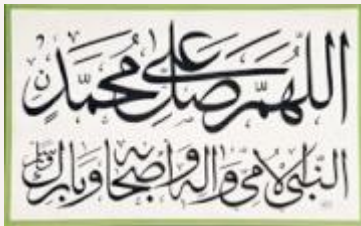 اللهم صل على محمد
النبي الامي واله واصحابه وبارك وسلم